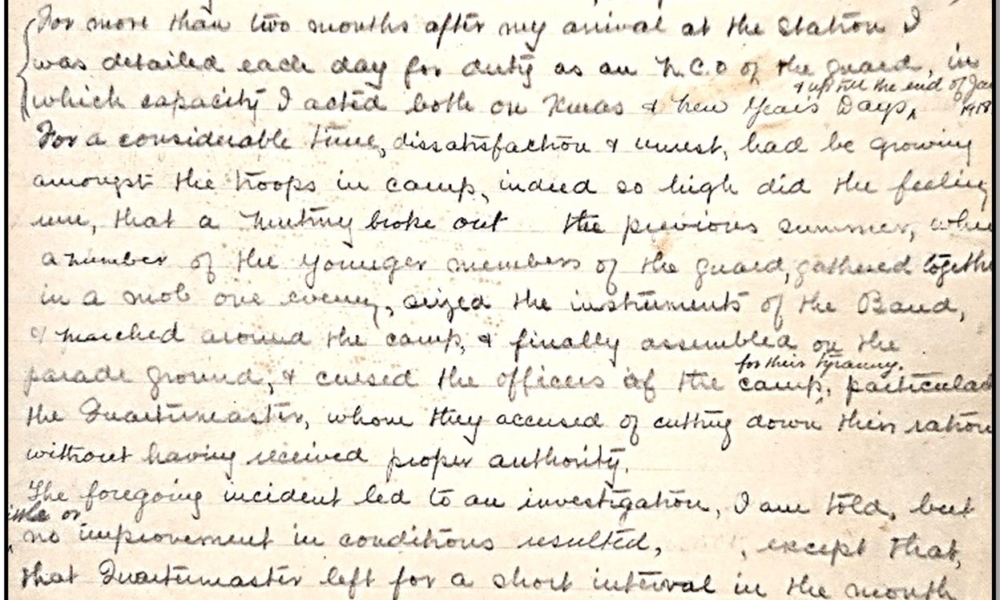 For more than two months after my arrival at the Station I
was detailed each day for duty as an N.C.O of the guard, in
& up till the end of Jan
which capacity I acted both on Xmas & New Years Days, 1918
For a considerable time, dissatisfaction & unrest, had be growing
amongst the troops in camp, indeed so high did the feeling
run, that a mutiny broke out the previous summer, when
a number of the younger members of the guard, gathered together
in a mob one evening, seized the instruments of the Band,
& marched around the camp, & finally assembled on the
for their tyranny.
parade ground, & cursed the officers of the camp, particular
the Quartermaster, whom they accused of cutting down their ration
without having received proper authority.
The foregoing incident led to an investigation, I am told, but
or
no improvement in conditions resulted, , except that,
that Quartermaster left for a short interval in the month